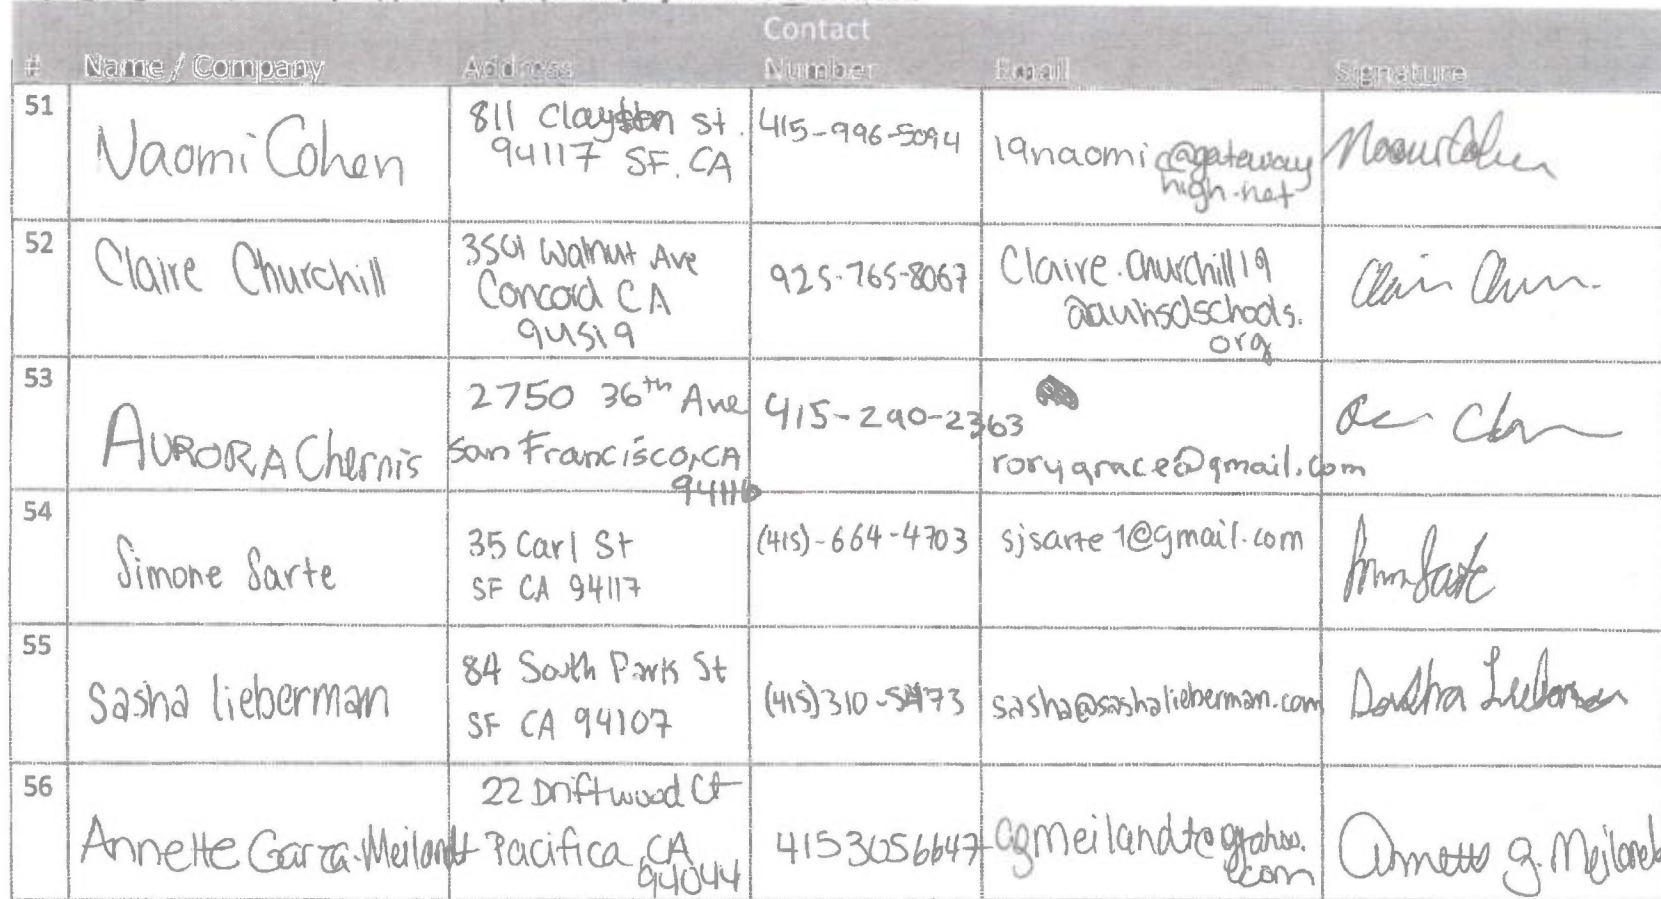 Contact
# Name / Company Address Number Email Signature
51
Naomi Cohen
811 Clayton st.
94117 SF. CA
415-996-5094
19naomic@gateway
high.net
52
Claire Churchill
3501 Walnut Ave
Concord CA
94519
925-765-8067
Claire.Churchill19
@auhsdschools.
org
53
AURORA Chernis
2750 36th Ave
San Francisco, CA
94116
415-290-2363
rorygrace@gmail.com
54
Simone Sarte
35 Carl St
SF CA 94117
(415)-664-4703
sjsarte1@gmail.com
55
Sasha lieberman
84 South Park St
SF CA 94107
(415)310-
sasha@sashalieberman.com
56
Annette Garza-Meilandt
22 Driftwood Ct
Pacifica, CA
94044
4153056647
agmeilandt@yahoo.
com
Annette G. Meilandt